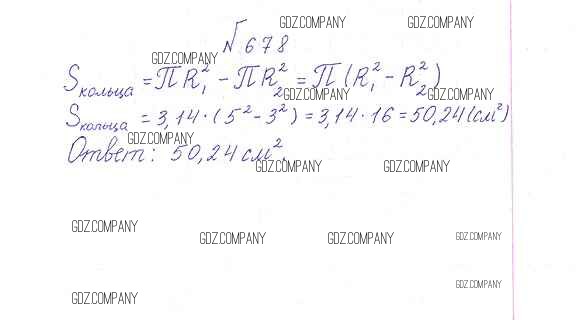 GDZ.COMPANY GDZ.COMPANY
№ 678
GDZ.COMPANY
Sкольца = πR₁² - πR₂² = π(R₁² - R₂²)
GDZ.COMPANY GDZ.COMPANY
Sкольца = 3,14 · (5² - 3²) = 3,14 · 16 = 50,24 (см²)
GDZ.COMPANY
Ответ: 50,24 см².
GDZ.COMPANY GDZ.COMPANY
GDZ.COMPANY
GDZ.COMPANY GDZ.COMPANY GDZ.COMPANY
GDZ.COMPANY
GDZ.COMPANY